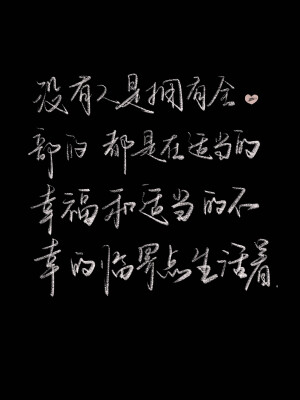 没有人是拥有全
部的 都是在适当的
幸福和适当的不
幸的临界点生活着.